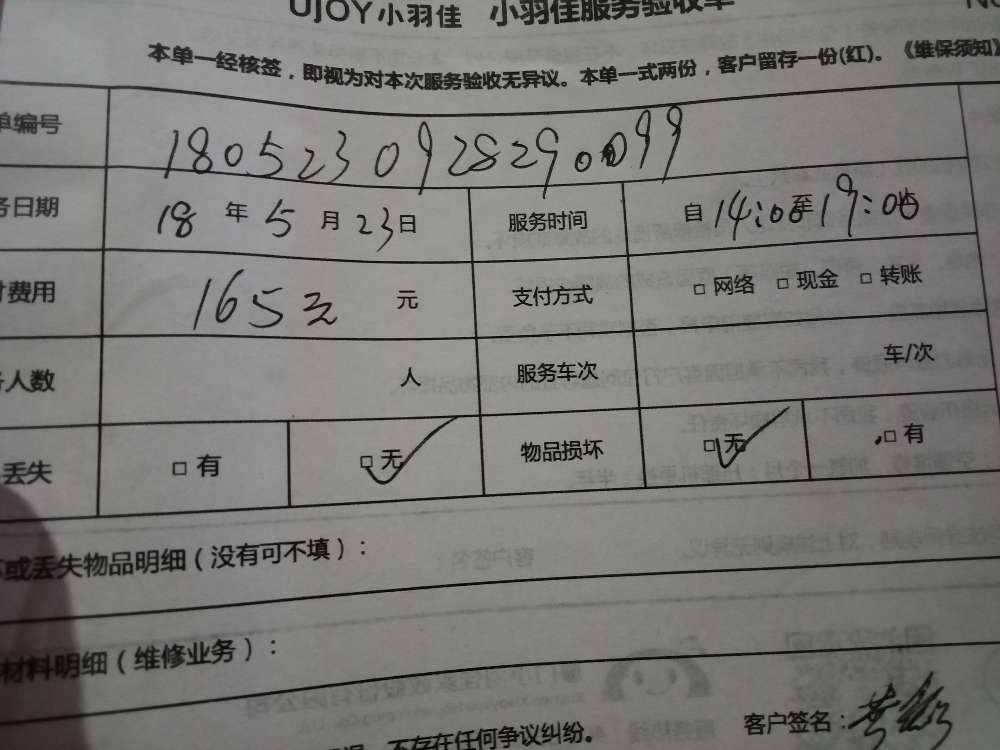 UJOY小羽佳 小羽佳服务验收单
本单一经核签，即视为对本次服务验收无异议。本单一式两份，客户留存一份(红)。《维保须知》
单编号 1805230928290099
务日期 18 年 5 月 23 日 服务时间 自 14:00 至 19:00
付费用 165元 元 支付方式 □ 网络 □ 现金 □ 转账
务人数 人 服务车次 车/次
丢失 □ 有 □ 无 ✓ 物品损坏 □ 无 ✓ □ 有
坏或丢失物品明细（没有可不填）：
材料明细（维修业务）：
不存在任何争议纠纷。 客户签名：